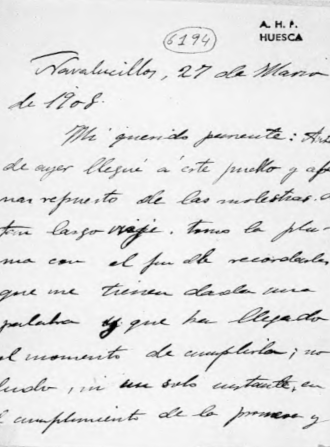 A. H. P.
HUESCA
6194
Navalucillos, 27 de Marzo
de 1908.
Mi querido pariente: Antes
de ayer llegué á este pueblo y ape
nas repuesto de las molestias de
tan largo viaje. tomo la plu-
ma con el fin de recordarles
que me tienen dada una
palabra y que ha llegado
el momento de cumplirla; no
dudo, ni un solo instante, en
el cumplimiento de la promesa y